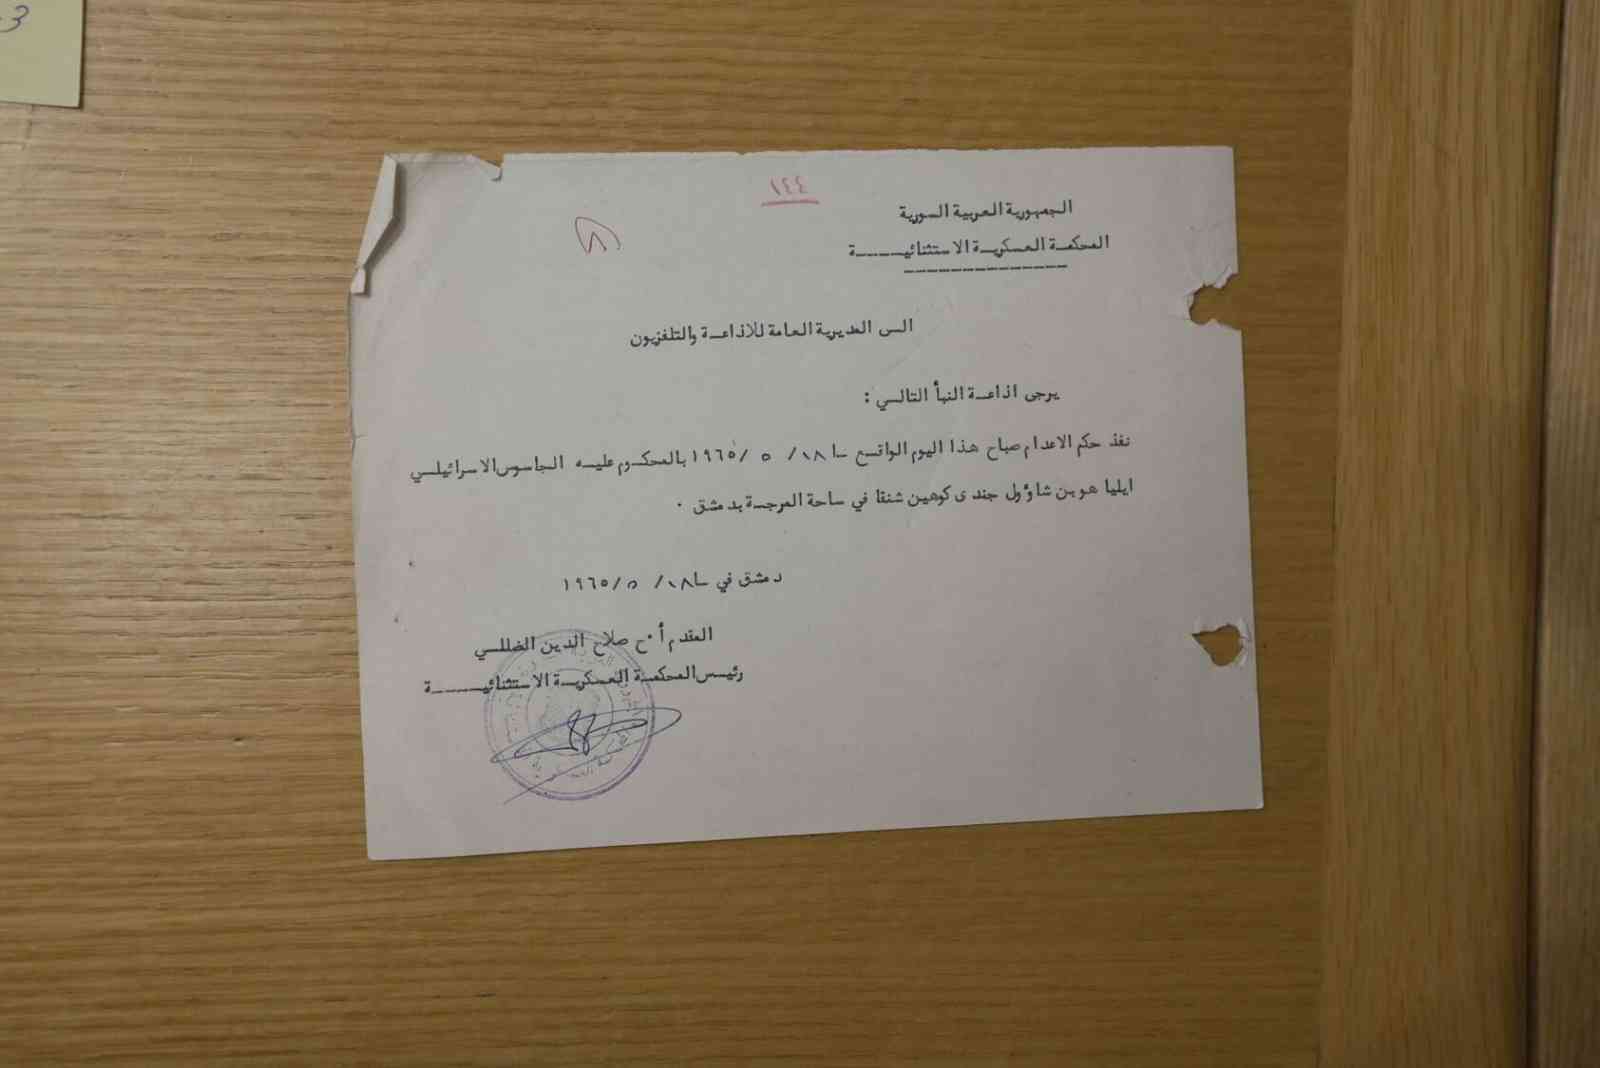 3
١٤٤
٨
الجمهورية العربية السورية
المحكمة العسكرية الاستثنائيــــة
الى المديرية العامة للاذاعة والتلفزيون
يرجى اذاعة النبأ التالي :
نفذ حكم الاعدام صباح هذا اليوم الواقع ١٨/ ٥ /١٩٦٥ بالمحكوم عليه الجاسوس الاسرائيلي
ايليا هو بن شاؤول جندى كوهين شنقا في ساحة المرجة بدمشق .
دمشق في ١٨/ ٥ /١٩٦٥
المقدم أ.ح صلاح الدين الضللي
رئيس المحكمة العسكرية الاستثنائيــــة